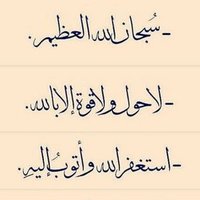 -سُبحان الله العظيم.
-لا حول ولا قوة إلا بالله.
-استغفر الله وأتوبُ إليهِ.